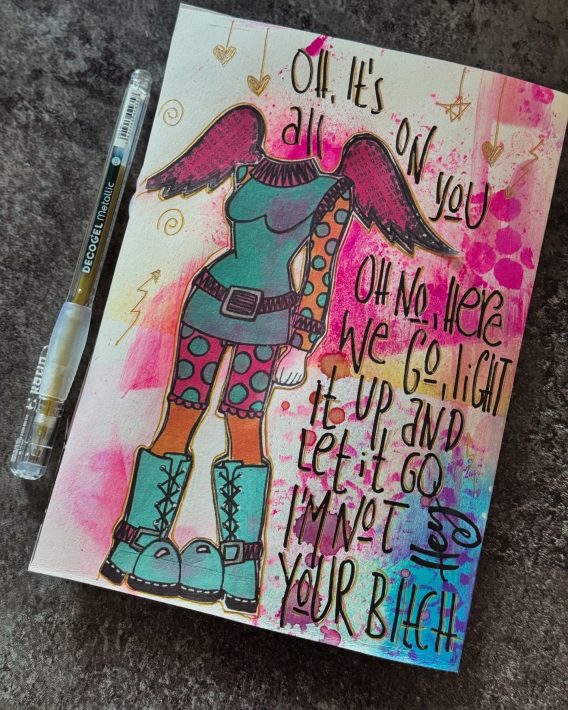 OH, It's
all ON YOU
OH NO, HERE
WE GO, LIGHT
It UP, AND
Let it GO
I'M NOT Hey
YOUR BITCH
DECOGEL Metallic